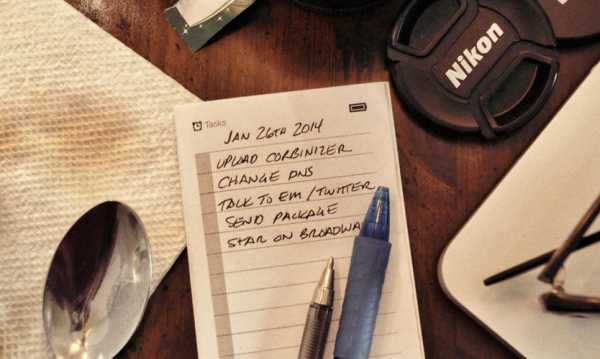 Nikon
Tasks
JAN 26TH 2014
UPLOAD CORBINIZER
CHANGE DNS
TALK TO EM / TWITTER
SEND PACKAGE
STAR ON BROADWA